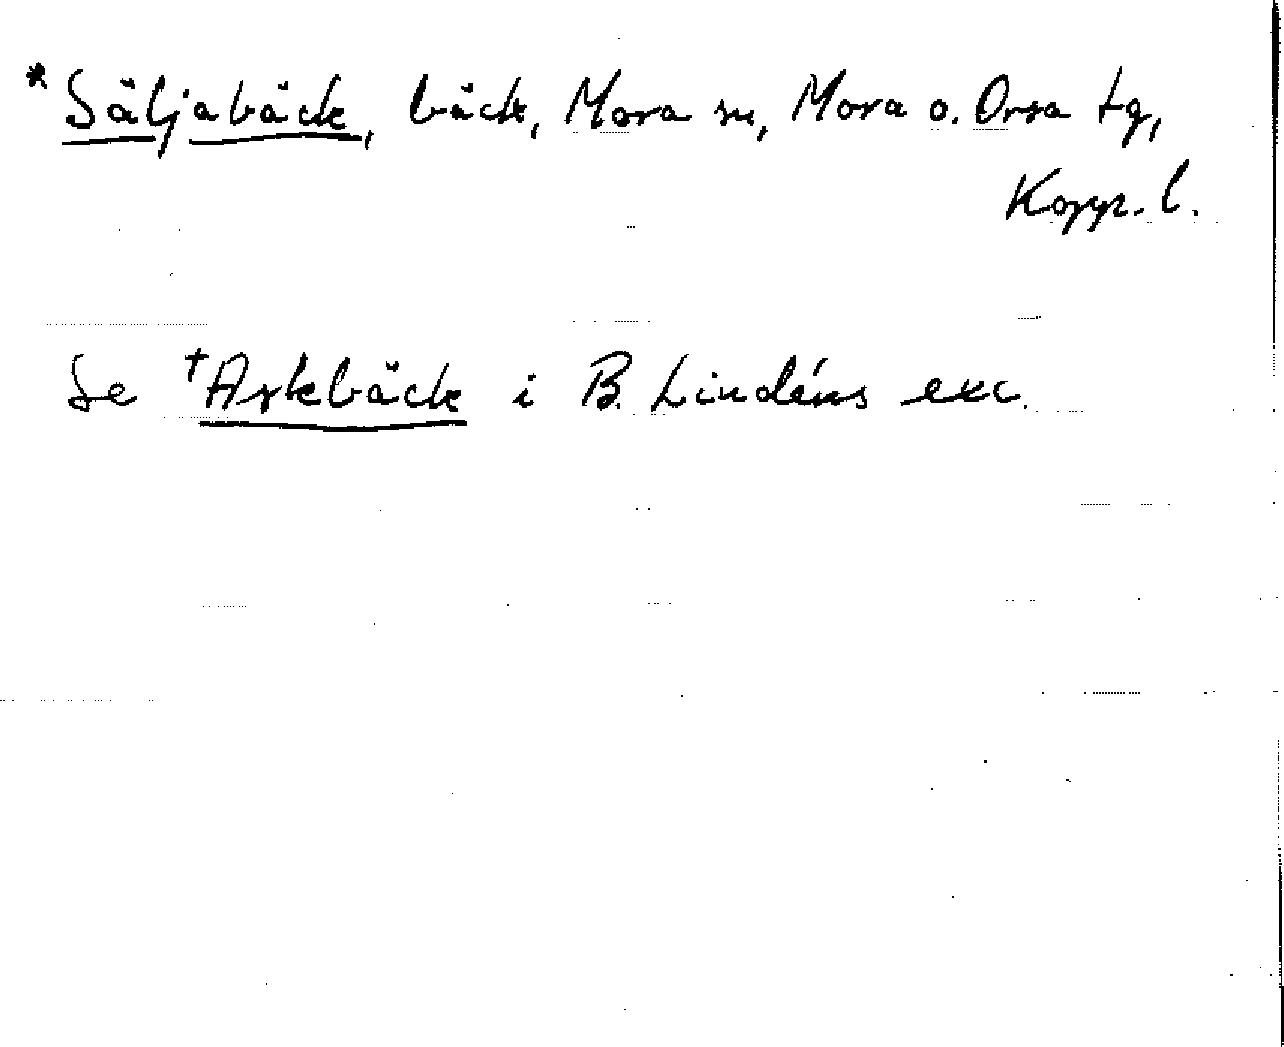 *Säljabäck, bäck, Mora sn, Mora o. Orsa tg,
Kopp. l.
Se †Askbäck i B. Lindéns exc.